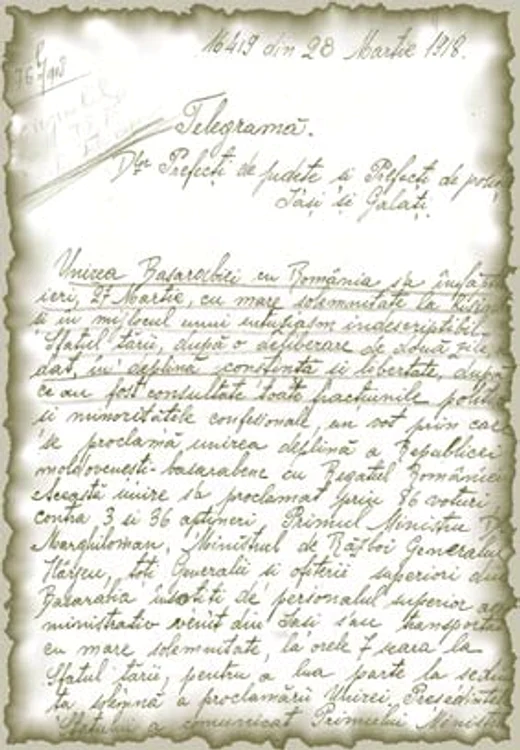 16419 din 28 Martie 1918.
Telegramă.
D-lor Prefecți de județe și Prefecți de poliți
Iași și Galați.
Unirea Basarabiei cu România s'a înfăpt
ieri, 27 Martie, cu mare solemnitate la Kisin
și în mijlocul unui entusiasm indescriptibil.
Sfatul țării, după o deliberare de două zile,
dat, în deplină conștiință și libertate, după
ce au fost consultate toate fracțiunile politic
și minoritățile confesionale, un vot prin care
se proclamă unirea deplină a Republicei
moldovenești-basarabene cu Regatul României
Această unire s'a proclamat prin 86 voturi
contra 3 și 36 abțineri. Primul Ministru D.
Marghiloman, Ministrul de Război Generalul
Hârjeu, toți Generalii și ofițerii superiori din
Basarabia însoțiți de personalul superior ad
ministrativ venit din Iași s'au transportat
cu mare solemnitate, la orele 7 seara la
Sfatul țării, pentru a lua parte la ședin
ța solemnă a proclamării Unirei. Președintele
Sfatului a comunicat Primului Minist